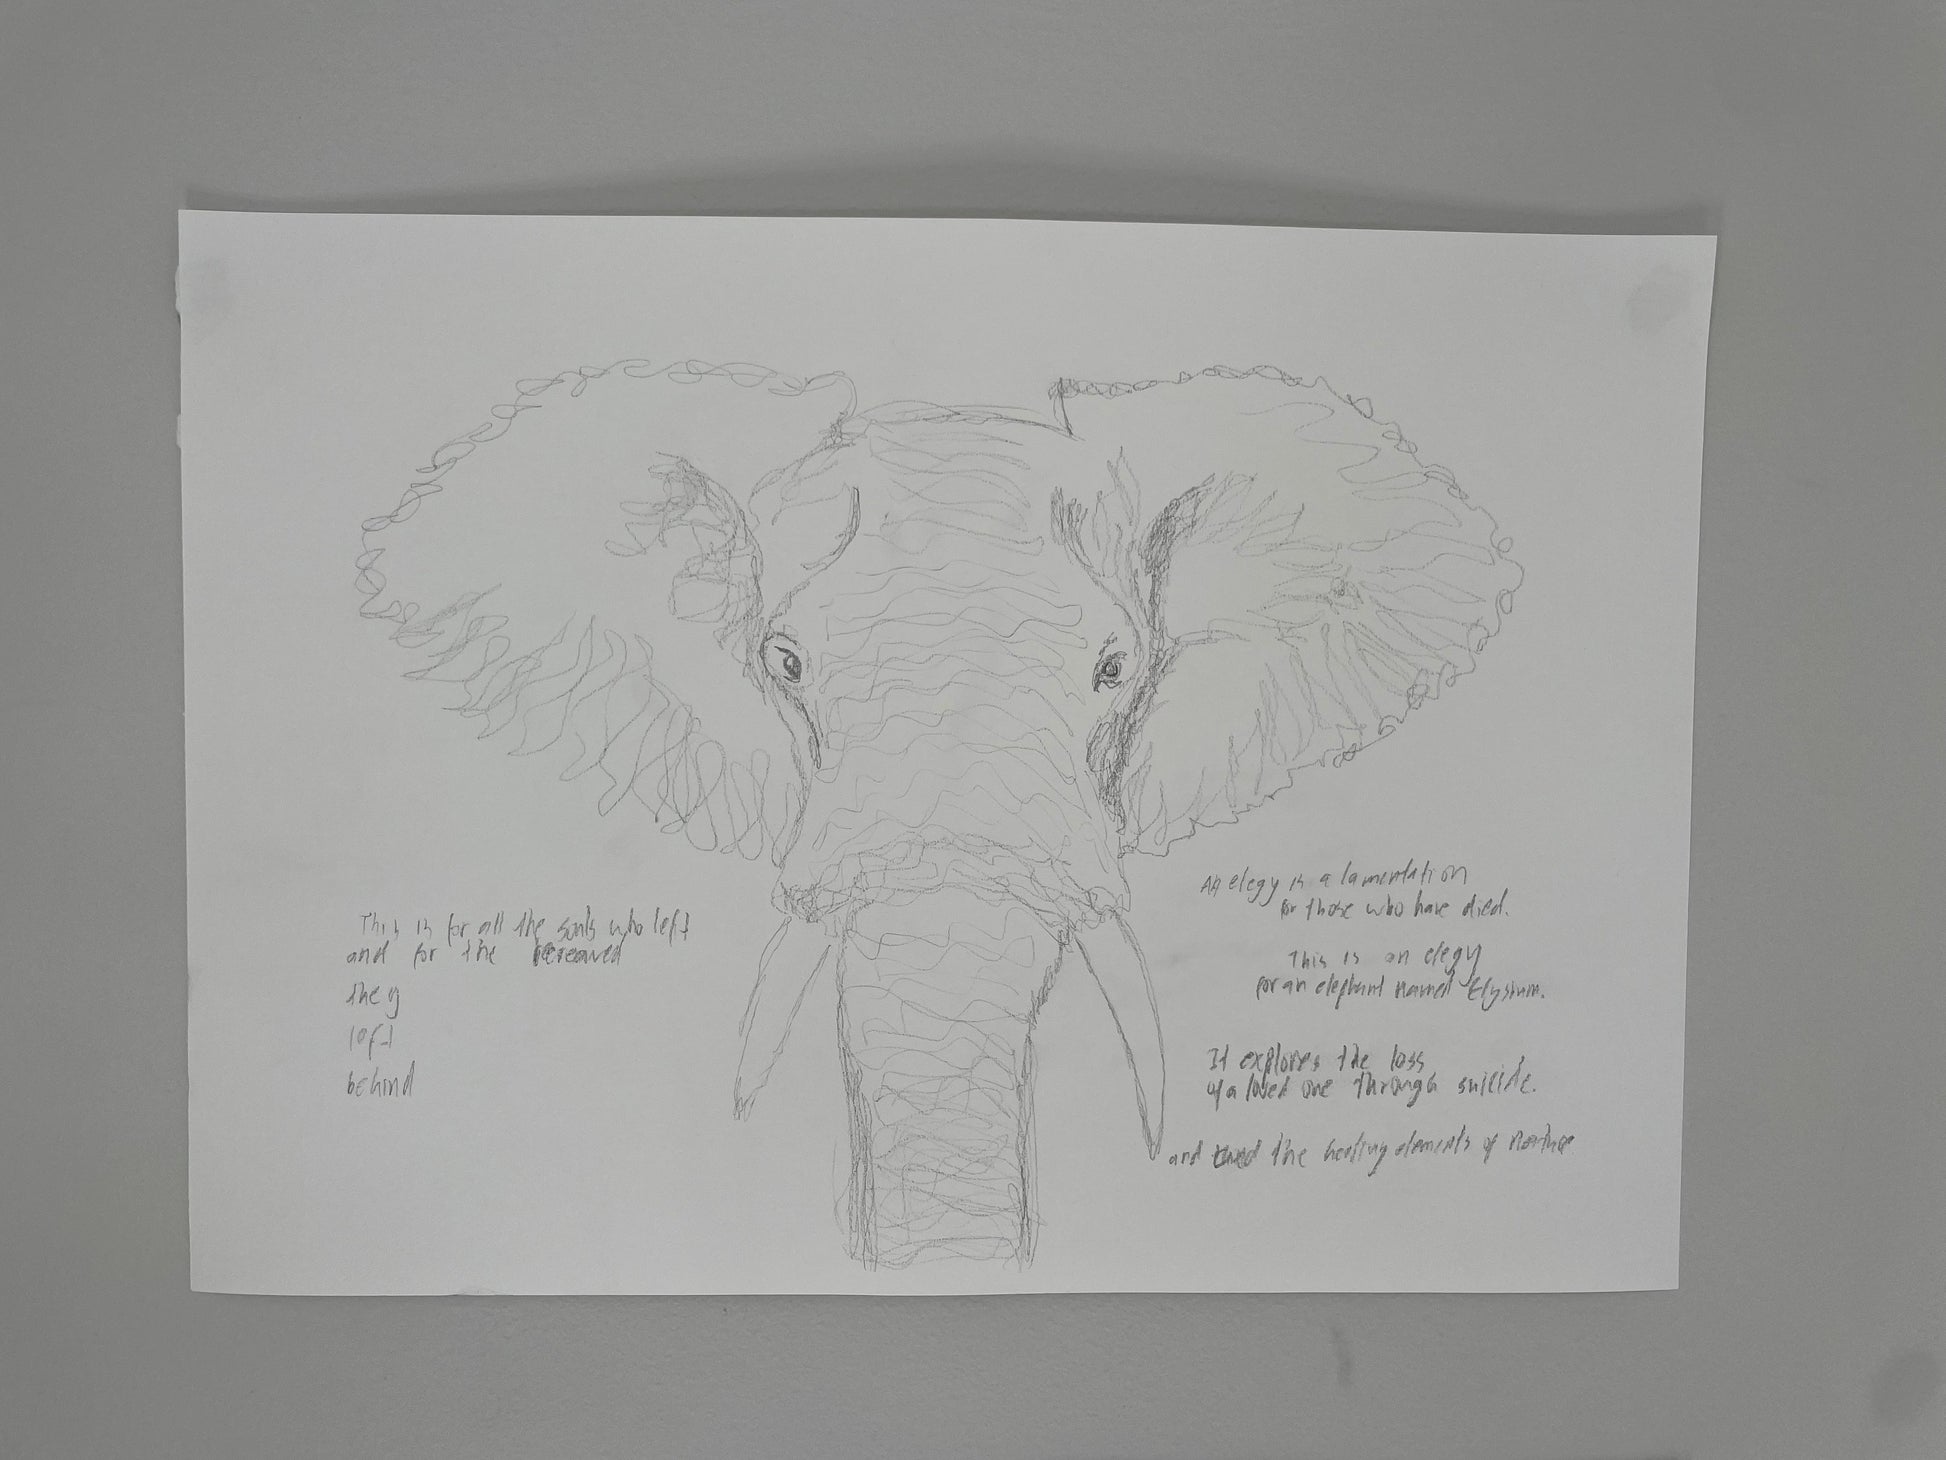 This is for all the souls who left
and for the bereaved
they
left
behind
An elegy is a lamentation
for those who have died.
This is an elegy
for an elephant named Elysium.
It explores the loss
of a loved one through suicide.
and the healing elements of Nature